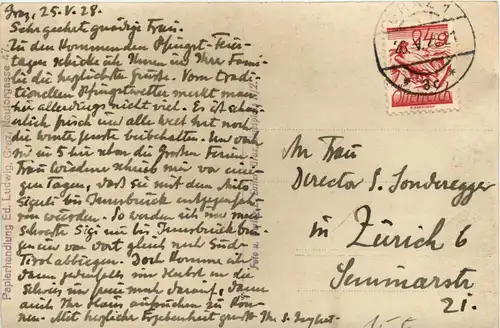 Graz, 25. V. 28.
Sehr geehrte gnädige Frau.
Zu den kommenden Pfingst-Feier-
tagen schicke ich Ihnen und Ihrer Fami-
lie die herzlichsten Grüße. Vom tradi-
tionellen Pfingstwetter merkt man
hier allerdings nicht viel. Es ist schau-
erlich frisch und alle Welt hat noch
die Winter beibehalten. Und doch
in 5 die Großen Ferien.
Frau schrieb mir vor eini-
gen Tagen, daß sie mit dem Auto
bis Innsbruck entgegenfah-
ren würden. So werden ich und mei-
Schwester bis Innsbruck
gen um von dort gleich nach Süd-
Tirol abbiegen. Doch komme ich
dann jedenfalls im Herbst in die
Schweiz und freue mich darauf, dann
auch Ihr Haus aufsuchen zu kön-
nen. Mit herzlicher Ergebenheit grüßt Ihr S.
Papierhandlung Ed. Ludwig, Graz, Neutorgasse 47.
GRAZ 1
An Frau
Director S. Sonderegger
in Zürich 6
Seminarstr
21.